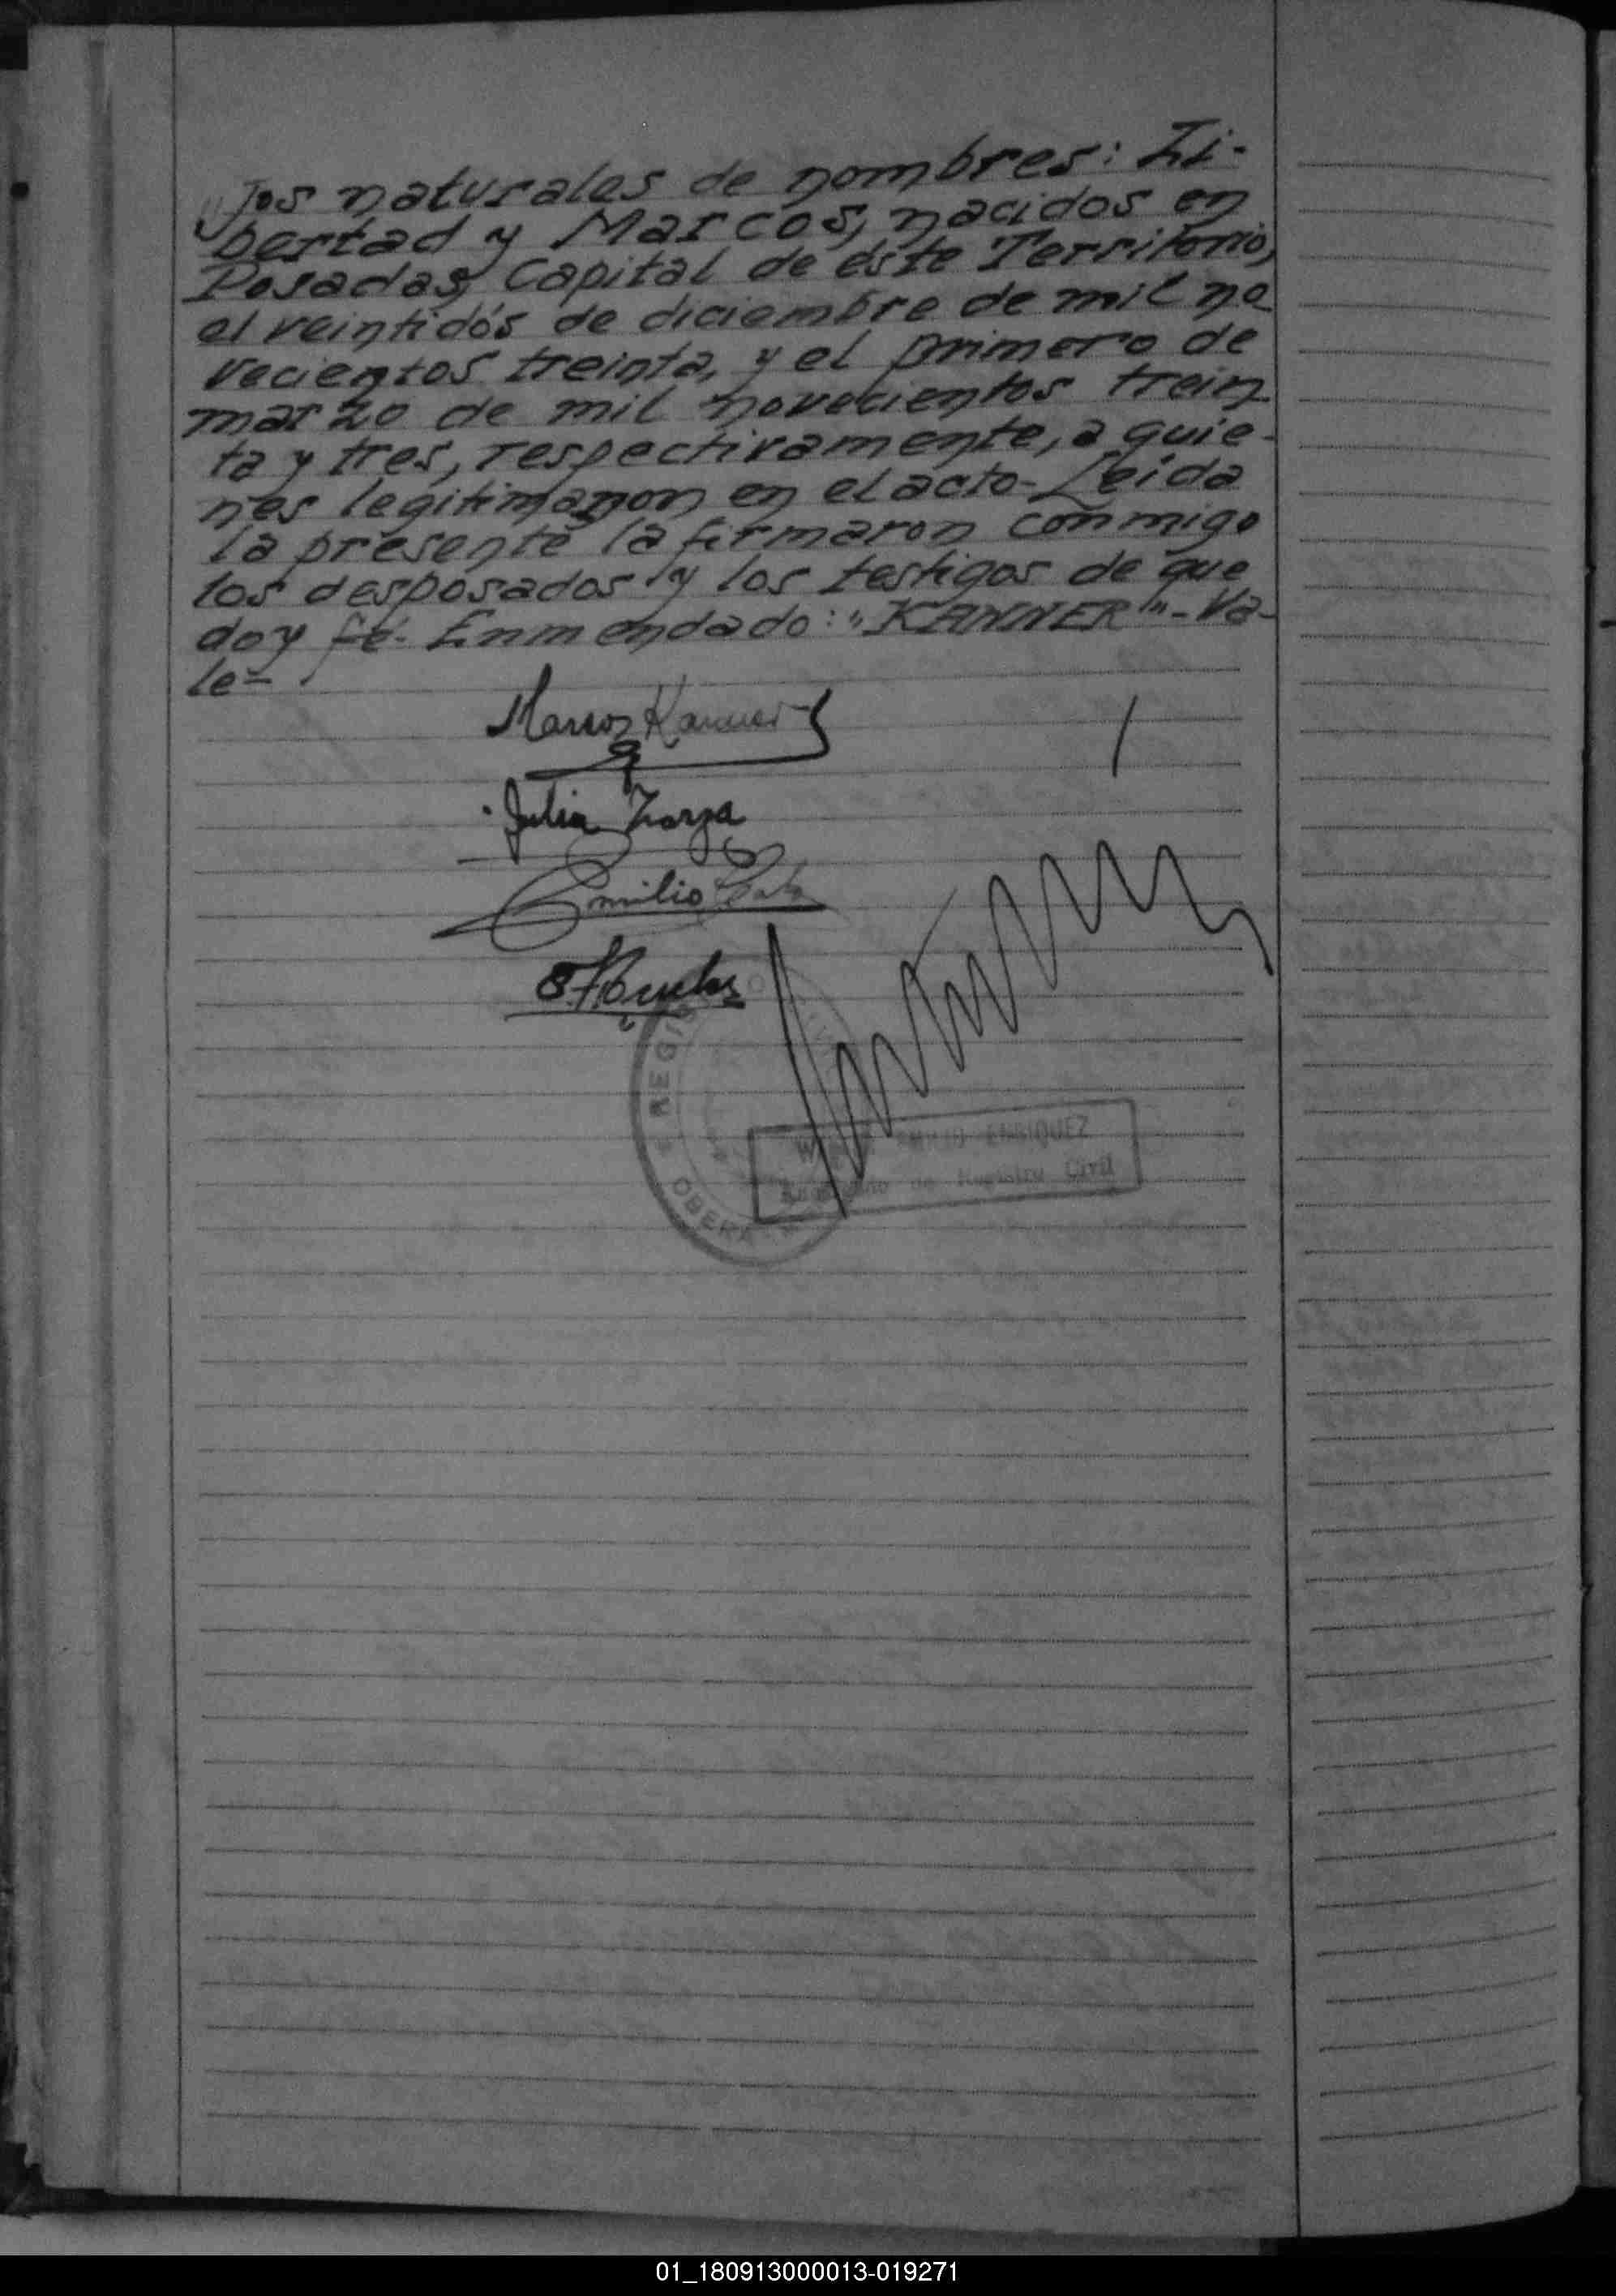 jos naturales de nombres: Li-
bertad y Marcos, nacidos en
Posadas, Capital de éste Territorio,
el veintidós de diciembre de mil no
vecientos treinta, y el primero de
marzo de mil novecientos trein
ta y tres, respectivamente, a quie-
nes legitimaron en el acto- Leída
la presente la firmaron conmigo
los desposados y los testigos de que
doy fé- Enmendado: "KANNER"- Va-
le-
Marcos Kanner
Julia Zarza
Emilio
REGIS
OBERA
EMILIO ENRIQUEZ
de Registro Civil
01_180913000013-019271